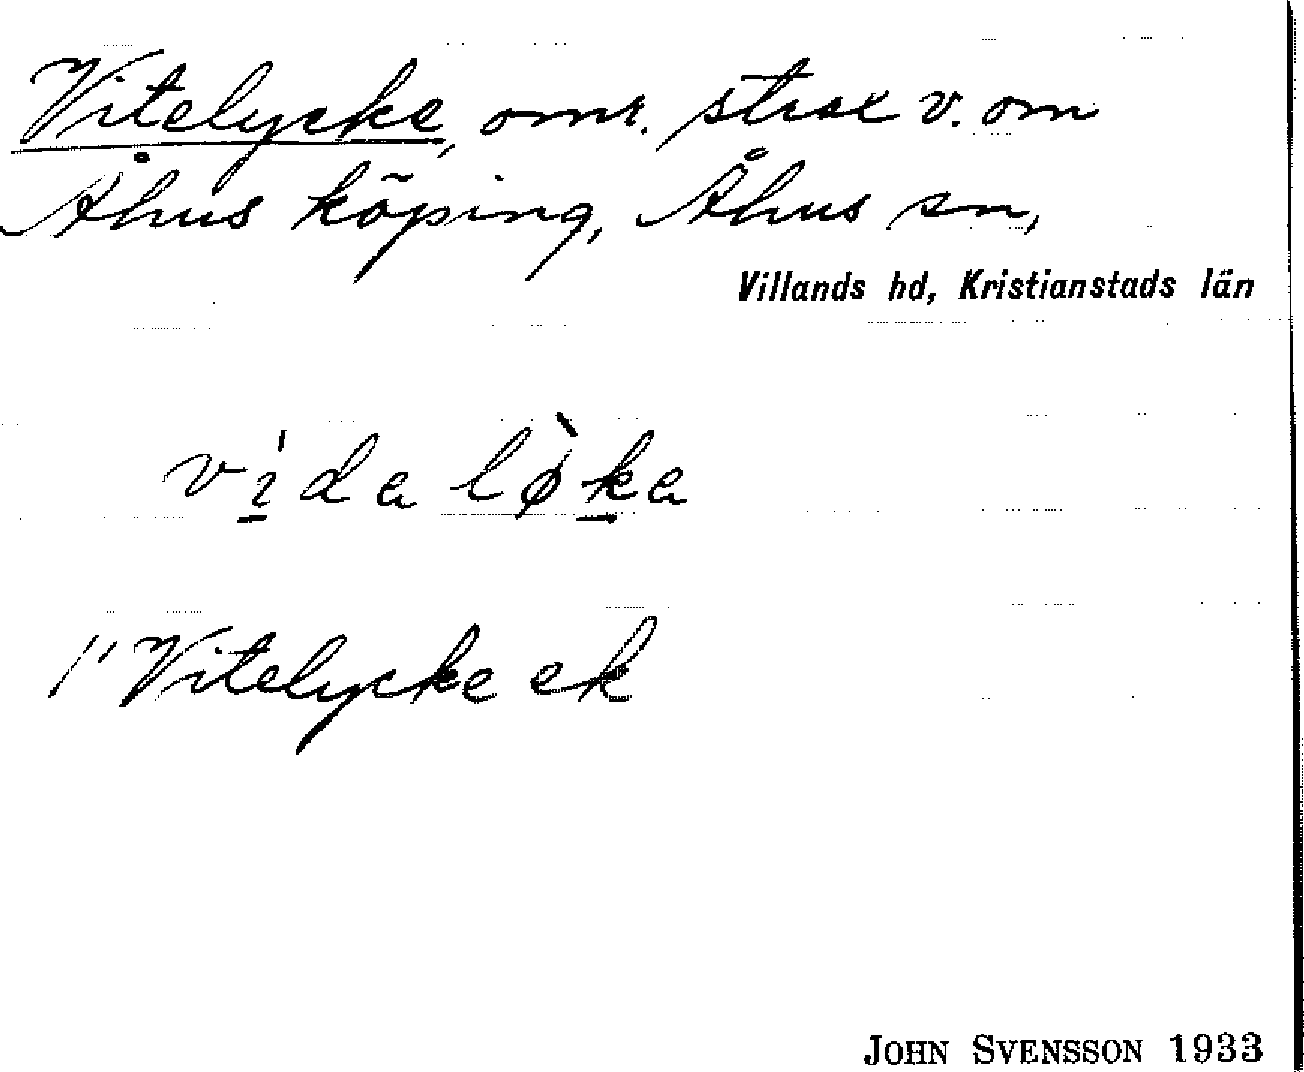 Vitelycke, omr. strax v. om
Åhus köping, Åhus sn,
Villands hd, Kristianstads län
vida lø̀ka
1" Vitelycke ek
JOHN SVENSSON 1933